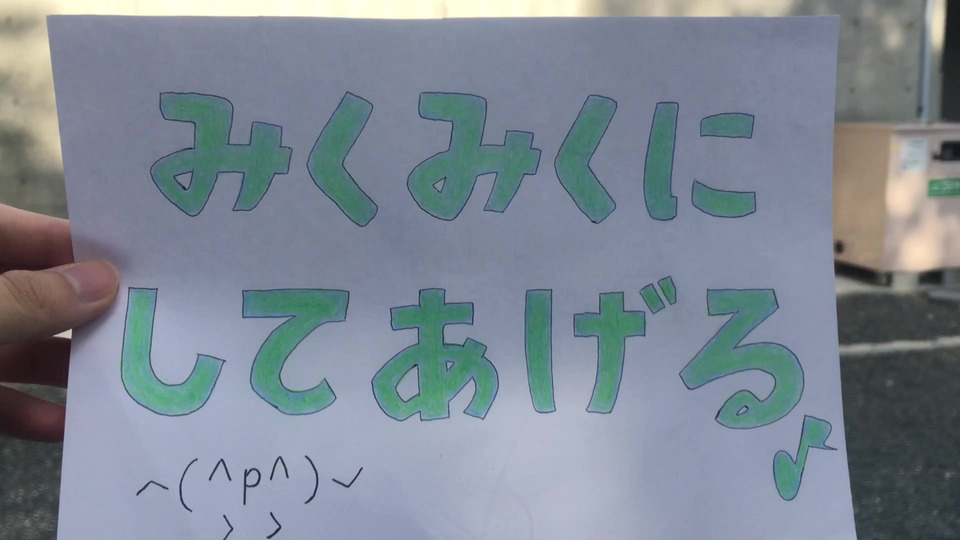 みくみくに
してあげる♪
へ(^p^)✓
> >